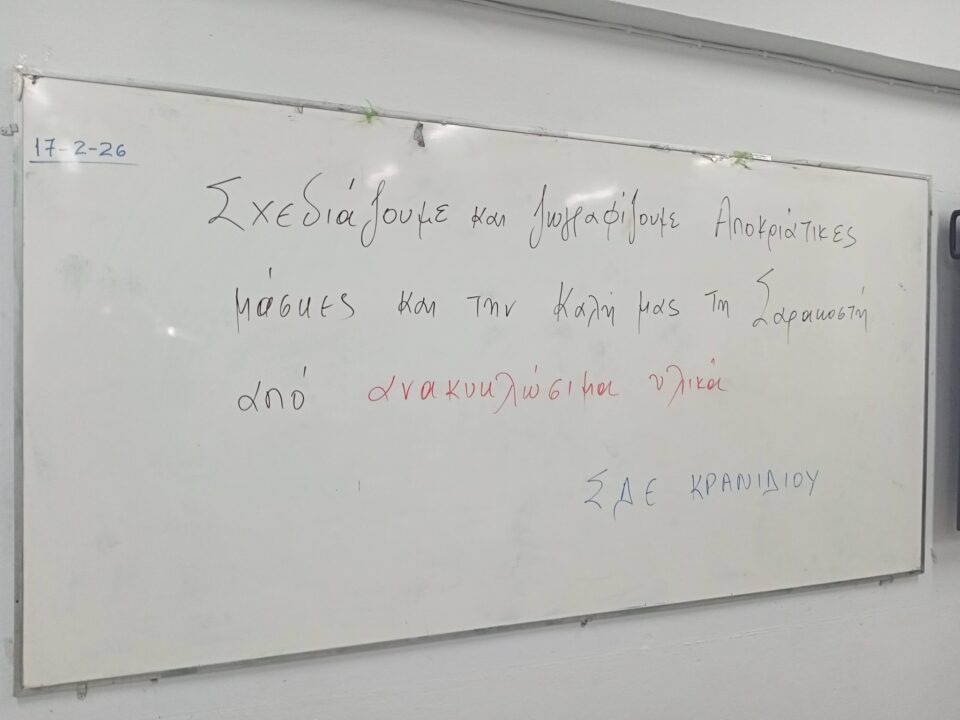 17-2-26
Σχεδιάζουμε και ζωγραφίζουμε Αποκριάτικες
μάσκες και την καλή μας τη Σαρακοστή
από ανακυκλώσιμα υλικά
ΣΔΕ ΚΡΑΝΙΔΙΟΥ